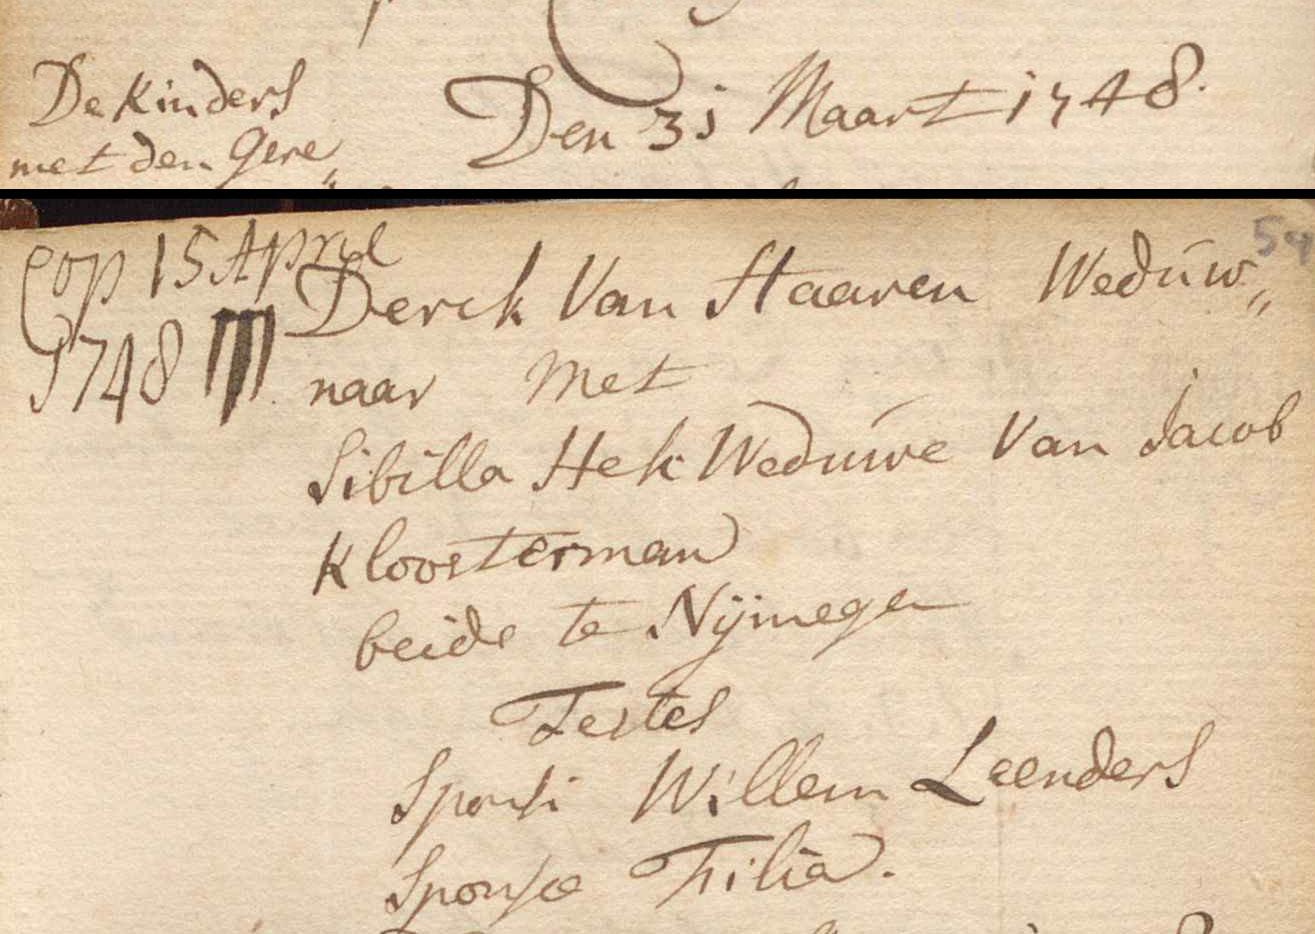 De Kinders
met den Gere„
Den 31 Maart 1748.
54
Cop 15 Apryl
1748
Derck Van Staaren Weduw„
naar Met
Sibilla Hek Weduwe Van Jacob
Kloosterman
beide te Nijmegen
Testes
Sponsi Willem Leenders
Sponsæ Filia.